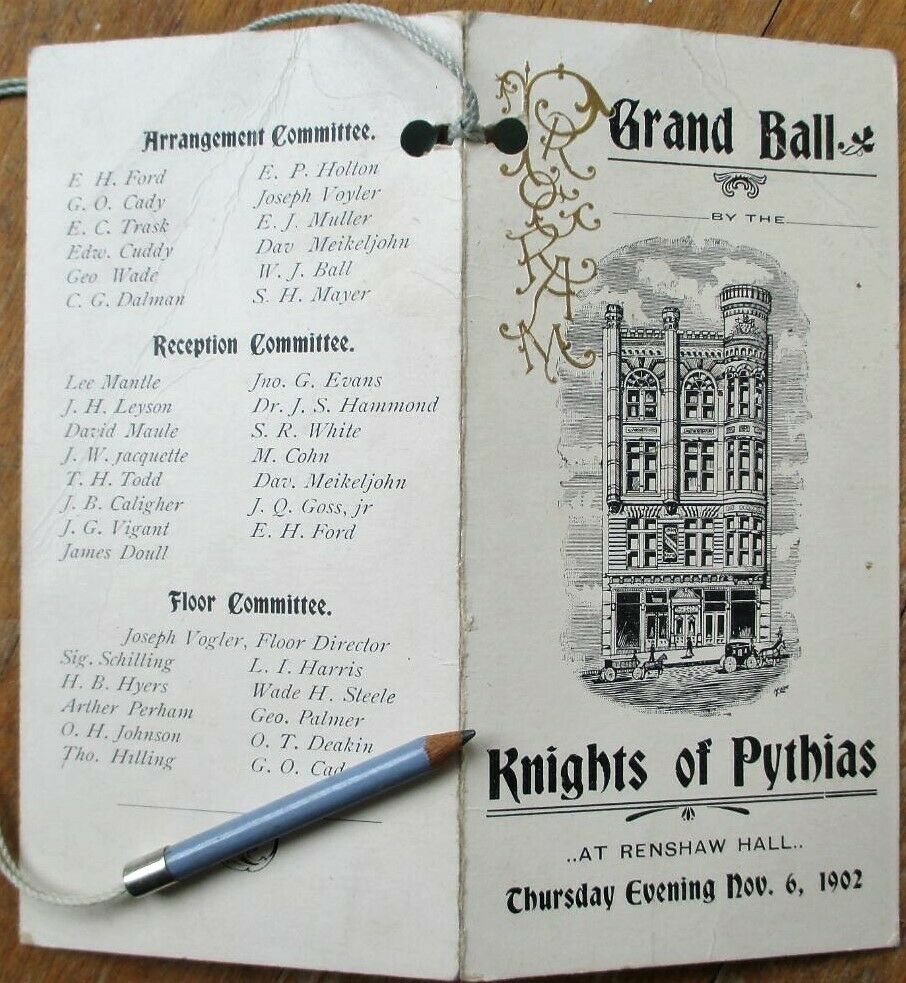 Arrangement Committee.
E H. Ford
G. O. Cady
E. C. Trask
Edw. Cuddy
Geo Wade
C. G. Dalman
E. P. Holton
Joseph Voyler
E. J. Muller
Dav Meikeljohn
W. J. Ball
S. H. Mayer
Reception Committee.
Lee Mantle
J. H. Leyson
David Maule
J. W. Jacquette
T. H. Todd
J. B. Caligher
J. G. Vigant
James Doull
Jno. G. Evans
Dr. J. S. Hammond
S. R. White
M. Cohn
Dav. Meikeljohn
J. Q. Goss, jr
E. H. Ford
Floor Committee.
Joseph Vogler, Floor Director
Sig. Schilling
H. B. Hyers
Arther Perham
O. H. Johnson
Tho. Hilling
L. I. Harris
Wade H. Steele
Geo. Palmer
O. T. Deakin
G. O. Cad
PROGRAM
Grand Ball
BY THE
Knights of Pythias
..AT RENSHAW HALL..
Thursday Evening Nov. 6, 1902